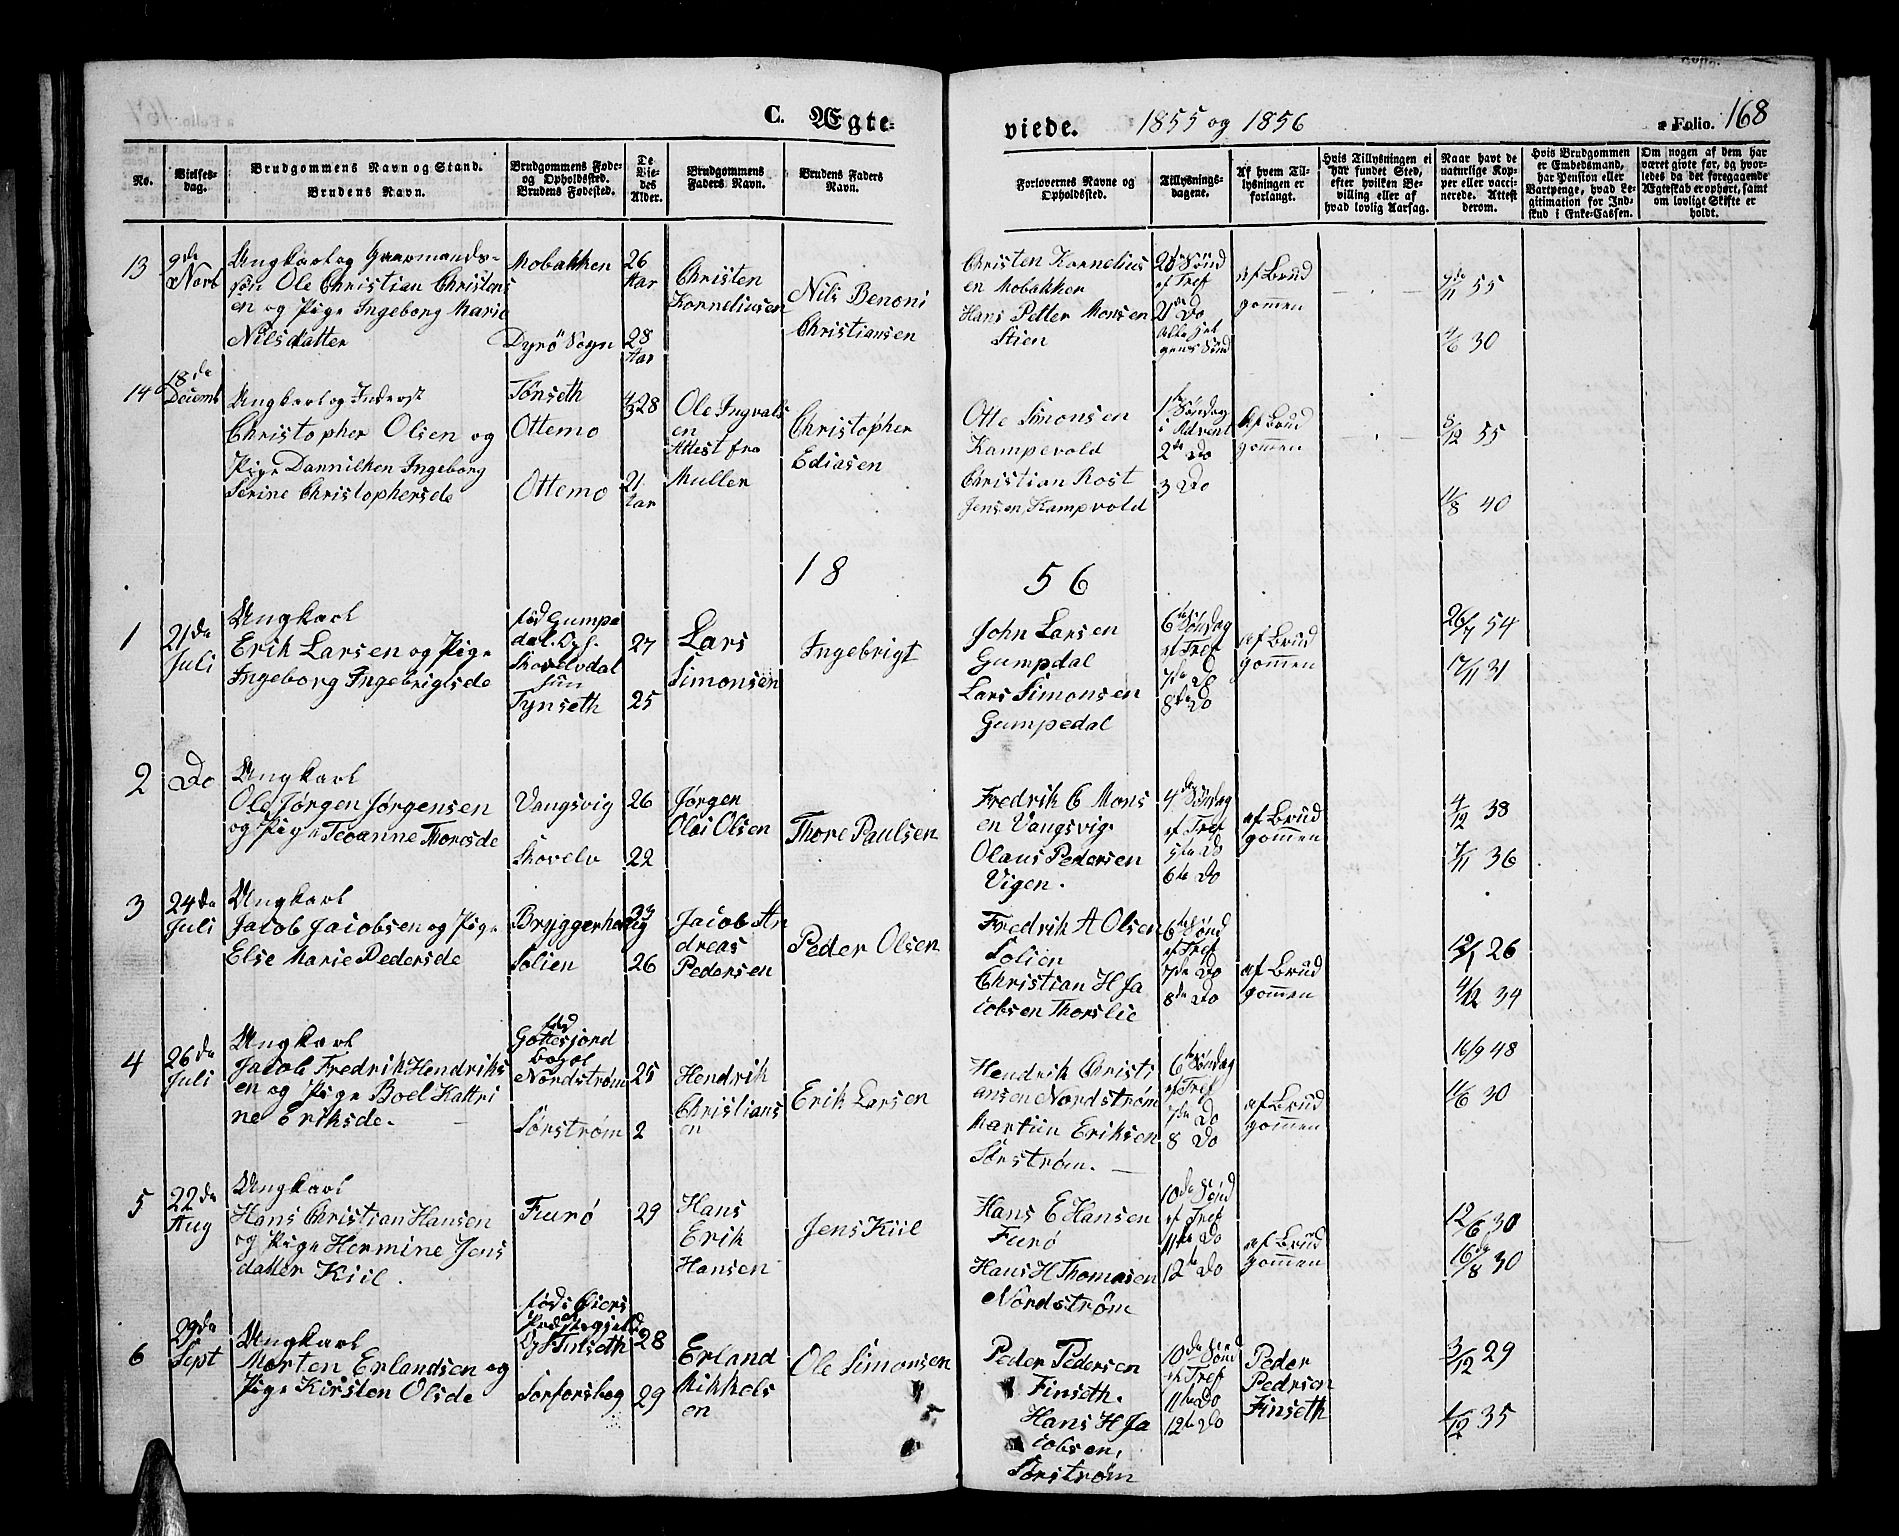 C. Ægte-
viede. 1855 og 1856
a Folio. 168
No.
Vielses-
dag.
Brudgommens Navn og Stand.
Brudens Navn.
Brudgommens Føde-
og Opholdssted.
Brudens Fødested.
De
Vie-
des
Alder.
Brudgommens
Faders Navn.
Brudens Faders
Navn.
Forlovernes Navne og
Opholdssted.
Tillysnings-
dagene.
Af hvem Til-
lysningen er
forlangt.
Hvis Tillysningen ei
har fundet Sted,
efter hvilken Be-
villing eller af
hvad lovlig Aarsag.
Naar havt de
naturlige Kop-
per eller vacci-
nerede. Attest
derom.
Hvis Brudgommen
er Embedsmand,
har Pension eller
Vartpenge, hvad Le-
gitimation for Ind-
skud i Enke-Cassen.
Om nogen af dem har
været givte før, og hvor-
ledes da det foregaaende
Ægteskab er ophørt, samt
om lovligt Skifte er
holdt.
13
9de
Novb
Ungkarl og Gaarmands-
søn Ole Christian Christens
en og Pige Ingeborg Marie
Nilsdatter
Mobakken
Dyrö Sogn
26
Aar
28
Aar
Christen
Korneliusen
Nils Benoni
Christiansen
Christen Kornelius
en Mobakken
Hans Petter Monsen
Stien
Sönd
ef Tref
Do
af Brud
gommen
55
4/6 30
14
18de
Decemb
Ungkarl og Inderst
Christopher Olsen og
Pige Dannilken Ingeborg
Serine Christophersde
Tönseth
Ottemo
Ottemo
28
21
Aar
Ole Ingvals
en
Attest fra
Muller
Christopher
Ediasen
Otte Simonsen
Kampevold
Christian Rost
Jensen Kampvold
1ste Söndag
i Advent
2de Do
3 Do
af Brud
gommen
8/12 55
11/8 40
18 56
1
21de
Juli
Ungkarl
Erik Larsen og Pige
Ingeborg Ingebrigtsde
föd Gumpe
dal. Oph.
Skovelvdal
Tynseth
27
25
Lars
Simonsen
Ingebrigt
John Larsen
Gumpdal
Lars Simonsen
Gumpedal
6te Söndag
ef Tref
7de Do
8de Do
af Brud
gommen
26/7 54
17/11 31
2
Do
Ungkarl
Ole Jörgen Jörgensen
og Pige Teoanne Thorsde
Vangsvig
Skovelv
26
22
Jörgen
Olai Olsen
Thore Paulsen
Fredrik C Mons
en Vangsvig.
Olaus Pedersen
Vigen.
4de Söndag
ef Tref
5te Do
6te Do
af Brud
gommen
4/12 38
7/11 36
3
24de
Juli
Ungkarl
Jacob Jacobsen og Pige
Else Marie Pedersde
Bryggerhaug
Solien
26
Jacob An
dreas
Pedersen
Peder Olsen
Fredrik A Olsen
Solien
Christian H Ja
cobsen Thorslie
6te Sönd
ef Tref
7de Do
8de Do
af Brud
gommen
26
4/12 34
4
26de
Juli
Ungkarl
Jacob Fredrik Hendriks
en og Pige Boel Kattri
ne Eriksde.
föd
Gottesjord
Nordström
Sörström
25
2
Hendrik
Christians
en
Erik Larsen
Hendrik Christi
ansen Nordström
Martin Eriksen
Sörström.
6te Söndag
ef Tref
7de Do
8 Do
af Brud
gommen
16/9 48
11/6 30
5
22de
Aug
Ungkarl
Hans Christian Hansen
og Pige Hermine Jens
datter Kiil.
Furö
29
Hans
Erik
Hansen
Jens Kiil
Hans E Hansen
Furö
Hans H Thomasen
Nordström
10de Sönd
ef Tref
11te Do
12te Do
af Brud
gommen
12/6 30
16de/8 30
6
29de
Sept
Ungkarl
Morten Erlandsen og
Pige Kirsten Olsde
föd i
Sörforsbog
28
29
Erland
Mikkels
en
Ole Simonsen
Peder Pedersen
Finseth.
Hans H Ja
cobsen,
Sörström
10de Sönd
ef Tref
11te Do
12te Do
Peder
Pedrsen
Finseth
3/12 29
4/12 35